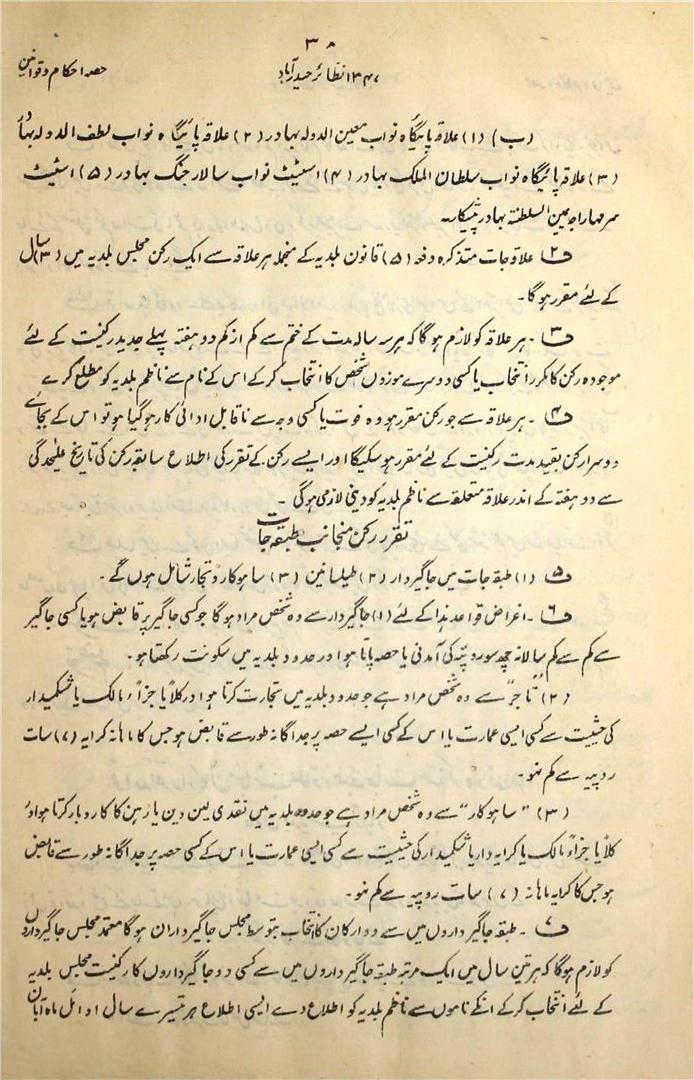 ۳۸
۱۳۴۷ نظائر حیدرآباد
حصہ احکام و قوانین
(ب) (۱) علاقہ پائیگاہ نواب معین الدولہ بہادر (۲) علاقہ پائیگاہ نواب لطف الدولہ بہادر
(۳) علاقہ پائیگاہ نواب سلطان الملک بہادر (۴) اسٹیٹ نواب سالار جنگ بہادر (۵) اسٹیٹ
سر مہاراجہ یمین السلطنتہ بہادر پیشکار۔
ف۲ علاوجات متذکرہ دفعہ (۵) قانون بلدیہ کے منجملہ ہر علاقہ سے ایک رکن مجلس بلدیہ میں (۳) سال
کے لئے مقرر ہوگا۔
ف۳ ۔ ہر علاقہ کو لازم ہوگا کہ ہر سہ سالہ مدت کے ختم سے کم از کم دو ہفتہ پہلے جدید رکنیت کے لئے
موجودہ رکن کا مکرر انتخاب یا کسی دوسرے موزوں شخص کا انتخاب کر کے اس کے نام سے ناظم بلدیہ کو مطلع کرے
ف۴ ۔ ہر علاقہ سے جو رکن مقرر ہو وہ فوت یا کسی وجہ سے ناقابل ادائی کار ہوگیا ہو تو اس کے بجائے
دوسرا رکن بقیہ مدت رکنیت کے لئے مقرر ہو سکیگا اور ایسے رکن کے تقرر کی اطلاع سابقہ رکن کی تاریخ علیٰحدگی
سے دو ہفتہ کے اندر علاقہ متعلقہ سے ناظم بلدیہ کو دینی لازمی ہوگی ۔
تقرر رکن منجانب طبقہ جات
ف۵ ۔ (۱) طبقہ جات میں جاگیردار (۲) طیلسانین (۳) ساہوکار و تجار شامل ہوں گے ۔
ف۶ ۔ اغراض قواعد ہذا کے لئے (۱) جاگیردار سے وہ شخص مراد ہوگا جو کسی جاگیر پر قابض ہو یا کسی جاگیر
سے کم سے کم سالانہ چھ سو روپیہ کی آمدنی یا حصہ پاتا ہو اور حدود بلدیہ میں سکونت رکھتا ہو ۔
(۲) تاجر سے وہ شخص مراد ہے جو حدود بلدیہ میں تجارت کرتا ہو اور کلاً یا جزاءً مالک یا شکمیدار
کی حیثیت سے کسی ایسی عمارت یا اس کے کسی ایسے حصہ پر جداگانہ طور سے قابض ہو جس کا ماہانہ کرایہ (۷) سات
روپیہ سے کم نہو ۔
(۳) "ساہوکار" سے وہ شخص مراد ہے جو حدود بلدیہ میں نقدی لین دین یا رہن کا کاروبار کرتا ہو اور
کلاً یا جزاءً مالک یا کرایہ دار یا شکمیدار کی حیثیت سے کسی ایسی عمارت یا اس کے کسی حصہ پر جداگانہ طور سے قابض
ہو جس کا کرایہ ماہانہ (۷) سات روپیہ سے کم نہو ۔
ف۷ ۔ طبقہ جاگیرداروں میں سے دو ارکان کا انتخاب بتوسط مجلس جاگیرداران ہوگا معتمد مجلس جاگیرداران
کو لازم ہوگا کہ ہر تین سال میں ایک مرتبہ طبقہ جاگیرداروں میں سے کسی دو جاگیرداروں کا رکنیت مجلس بلدیہ
کے لئے انتخاب کر کے انکے ناموں سے ناظم بلدیہ کو اطلاع دے ایسی اطلاع ہر تیسرے سال اوائل ماہ آبان